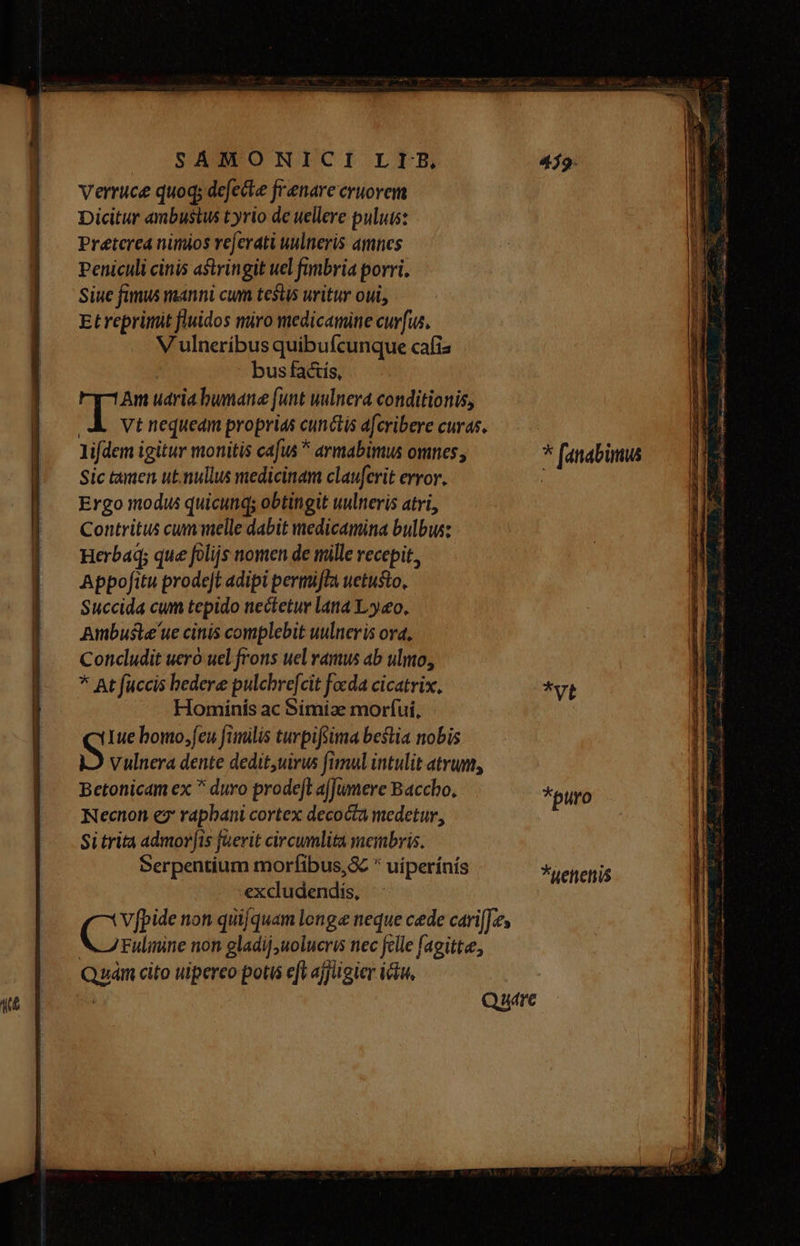 SAMONICI LIB, 459.
Verrucæ quoq; defectæ frænare cruorem
Dicitur ambustus tyrio de uellere puluis:
Præterea nimios reserati uulneris amnes
Peniculi cinis astringit uel fimbria porri.
Siue fimus manni cum testis uritur oui,
Et reprimit fluidos miro medicamine cursus.
Vulneribus quibuscunque casi=
bus factis,
TAm uaria humanæ sunt uulnera conditionis,
Vt nequeam proprias cunctis ascribere curas.
Iisdem igitur monitis casus * armabimus omnes, * sanabimus
Sic tamen ut nullus medicinam clauserit error.
Ergo modus quicunq; obtingit uulneris atri,
Contritus cum melle dabit medicamina bulbus:
Herbaq; quæ folijs nomen de mille recepit,
Appositu prodest adipi permista uetusto.
Succida cum tepido nectetur lana Lyæo.
Ambustæ'ue cinis complebit uulneris ora,
Concludit uerò uel frons uel ramus ab ulmo,
* At succis hederæ pulchrescit fœda cicatrix. *Vt
Hominis ac Simiæ morsui,
SIue homo, seu similis turpissima bestia nobis
Vulnera dente dedit, uirus simul intulit atrum,
Betonicam ex * duro prodest assumere Baccho. *puro
Necnon & raphani cortex decocta medetur,
Si trita admorsis fuerit circumlita membris.
Serpentium morsibus, & * uiperínís *uenenis
excludendis,
CVspide non quisquam longæ neque cæde carissæ,
Fulmine non gladij, uolucris nec felle sagittæ,
Quàm cito uipereo potis est affligier ictu.
Quare